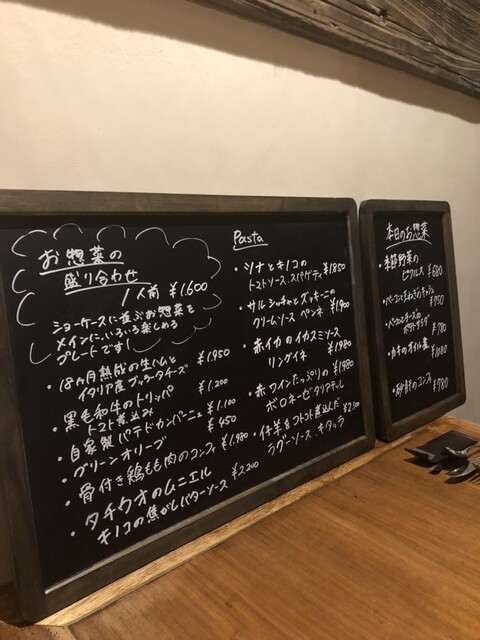 お惣菜の
盛り合わせ
1人前 ¥1.600
ショーケースに並ぶお惣菜を
メインに、いろいろ楽しめる
プレートです!
・18ヶ月熟成の生ハムと
イタリア産ブッラータチーズ ¥1.950
・黒毛和牛のトリッパ
トマト煮込み ¥1.200
・自家製パテドカンパーニュ ¥1.100
・グリーンオリーブ ¥450
・骨付き鶏もも肉のコンフィ ¥1.980
・タチウオのムニエル
キノコの焦がしバターソース ¥2.200
Pasta
・ツナとキノコの
トマトソース.スパゲティ ¥1850
・サルシッチャとズッキーニの
クリームソース ペンネ ¥1,900
・赤イカのイカスミソース
リングイネ ¥1980
・赤ワインたっぷりの ¥1980
ボロネーゼ タリアテッレ
・仔羊をコトコト煮込んだ ¥2,100
ラグーソース.キタッラ
本日のお惣菜
・季節野菜の
ピクルス ¥680
¥950
ポテトサラダ ¥780
・カキのオイル煮
・砂肝のコンフィ ¥780